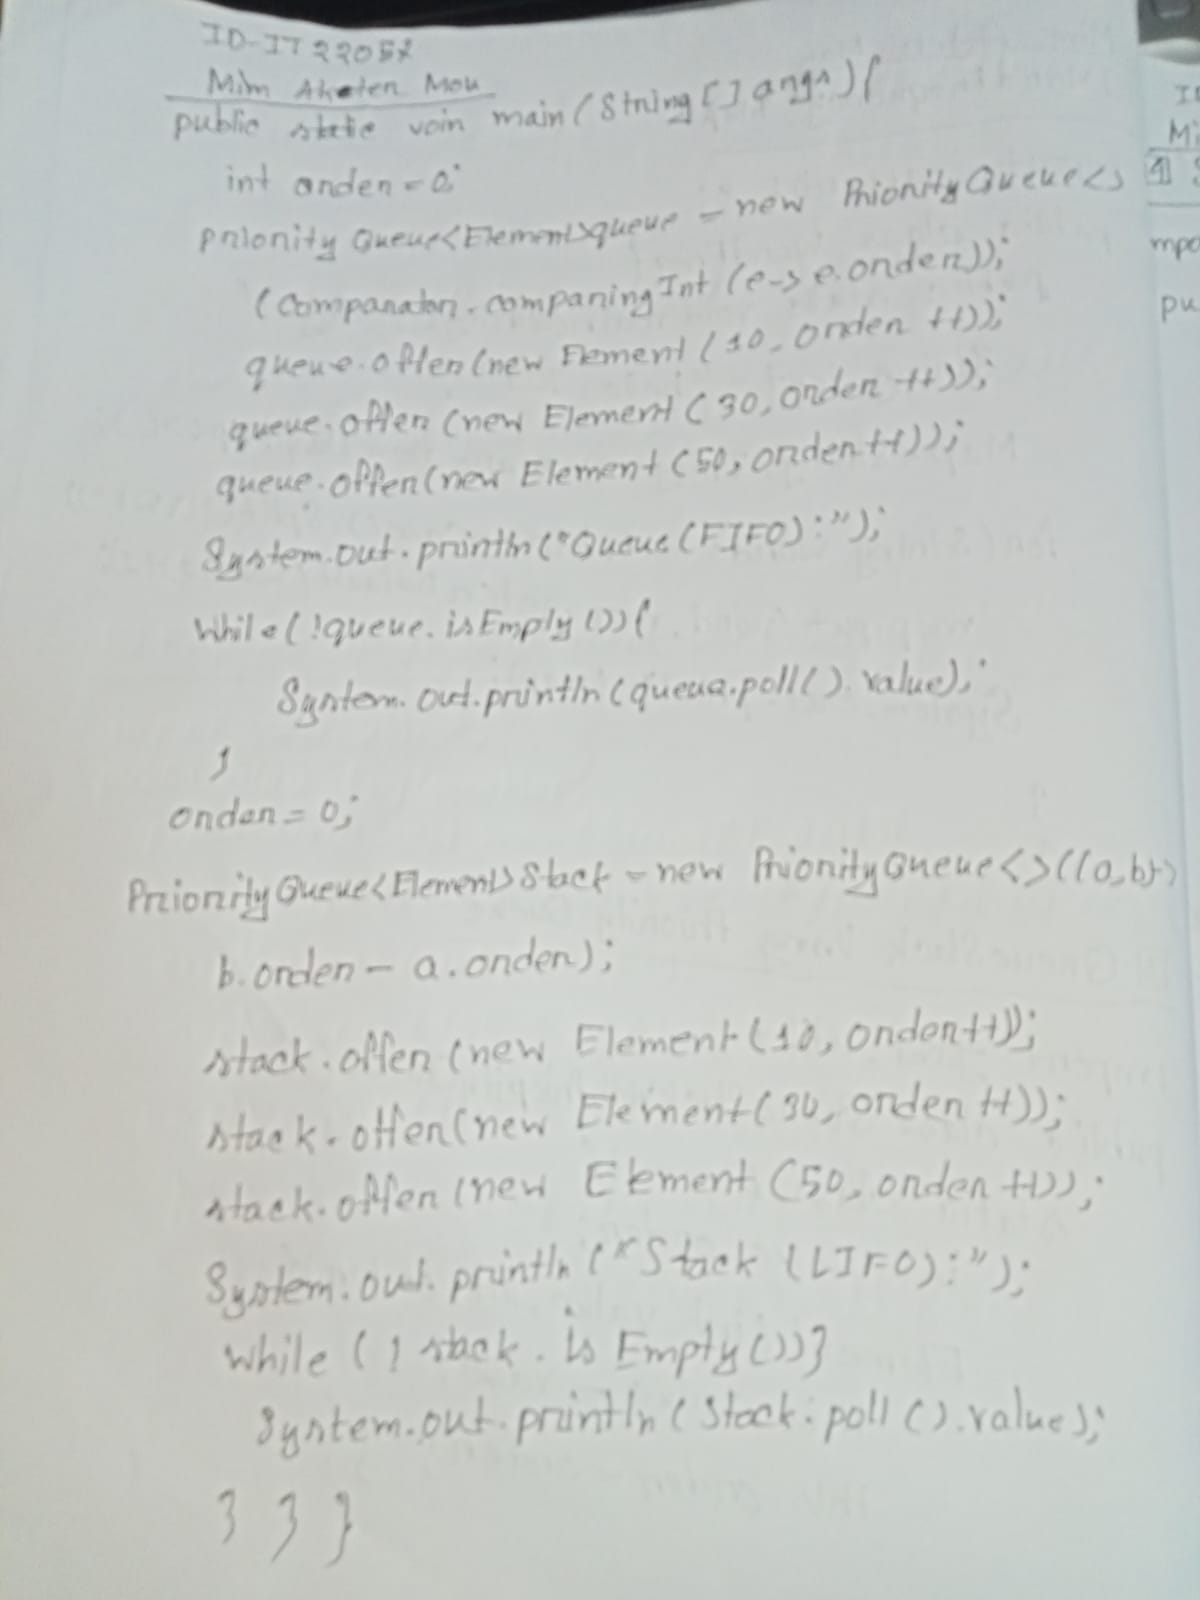 ID-IT22052
Mim Akoten Mou
public static voin main (String [] args) {
int onden = 0;
Priority Queue<Element>queue = new PriorityQueue<>
(Comparator.comparingInt (e-> e.order));
queue.offer (new Element (10, order ++));
queue.offer (new Element (30, order ++));
queue.offer (new Element (50, order ++));
System.out.println ("Queue (FIFO):");
while (!queue.isEmpty ()) {
System.out.println (queue.poll().value);
}
order = 0;
PriorityQueue<Element> Stack = new PriorityQueue<>((a,b)->
b.order - a.order);
stack.offer (new Element (10, order++));
stack.offer (new Element (30, order ++));
stack.offer (new Element (50, order ++));
System.out.println ("Stack (LIFO):");
while (! stack.isEmpty ()) }
System.out.println (Stack.poll ().value);
} } }
Mi
mpo
pu